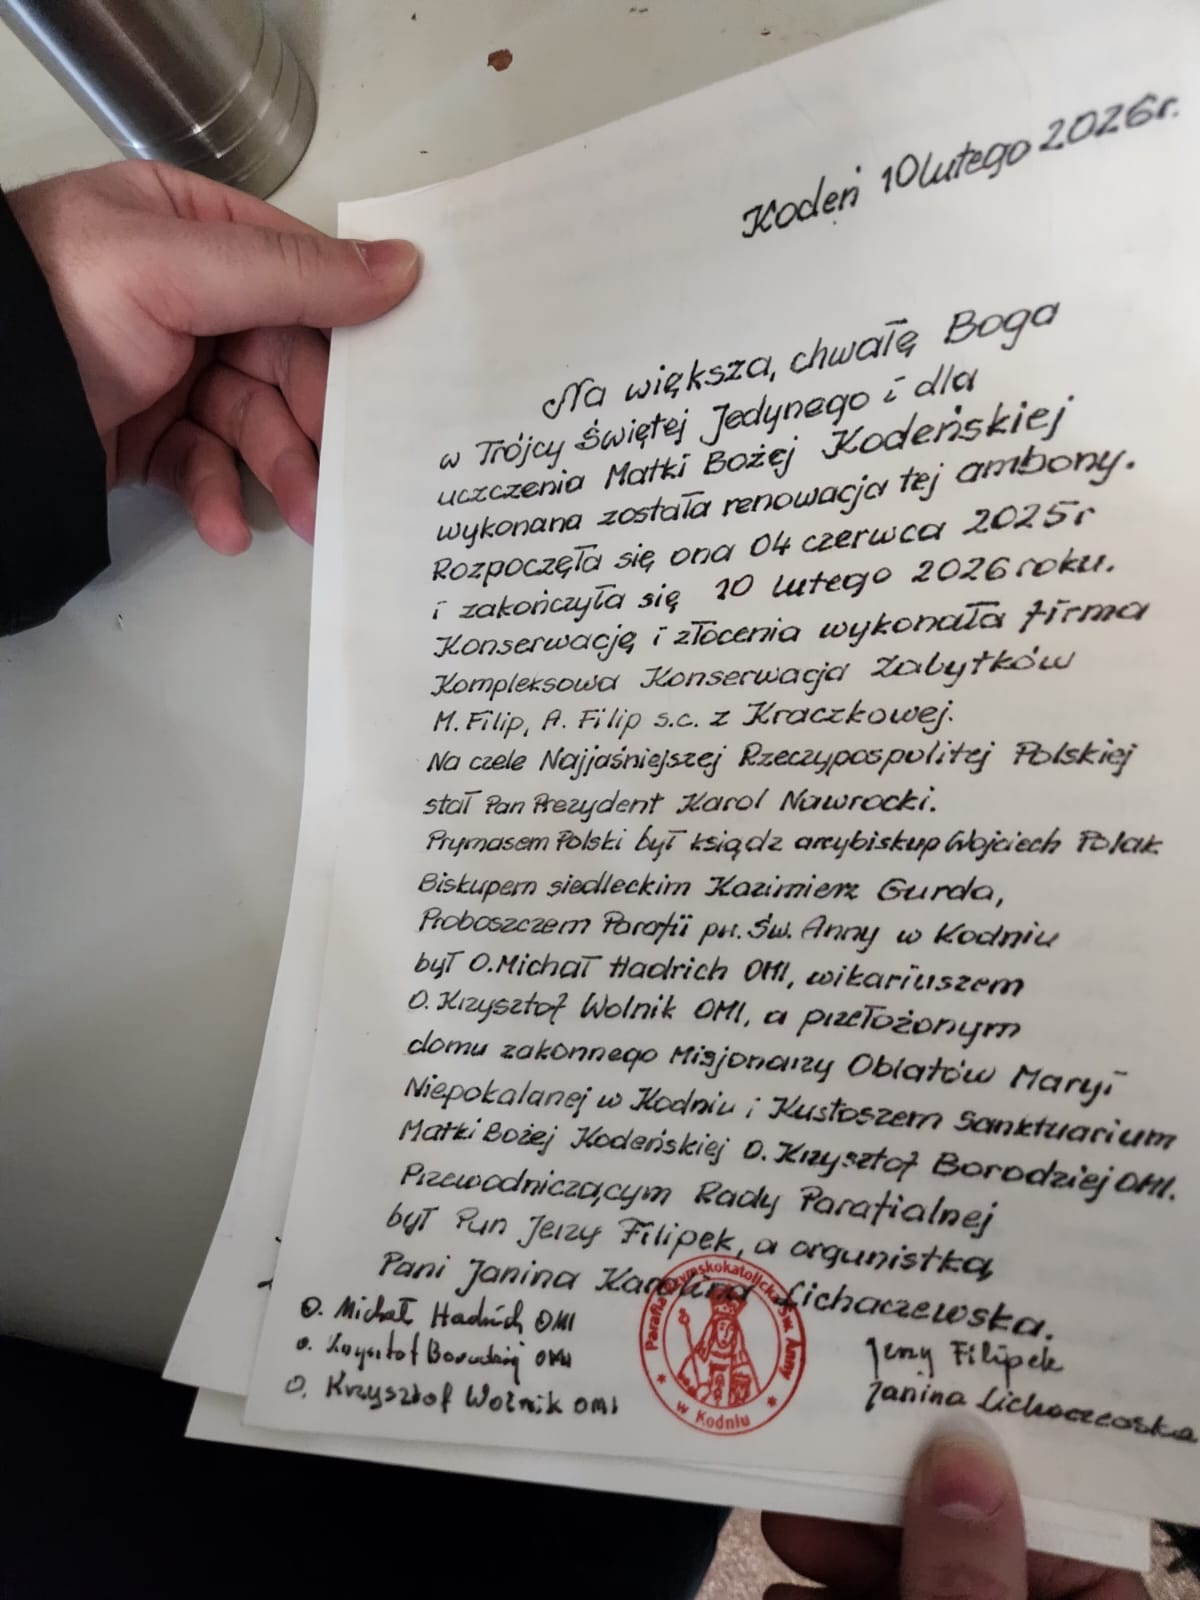 Kodeń 10 lutego 2026r.
Na większą chwałę Boga
w Trójcy Świętej Jedynego i dla
uczczenia Matki Bożej Kodeńskiej
wykonana została renowacja tej ambony.
Rozpoczęła się ona 04 czerwca 2025r
i zakończyła się 10 lutego 2026 roku.
Konserwację i złocenia wykonała firma
Kompleksowa Konserwacja Zabytków
M. Filip, A. Filip s.c. z Kraczkowej.
Na czele Najjaśniejszej Rzeczypospolitej Polskiej
stał Pan Prezydent Karol Nawrocki.
Prymasem Polski był ksiądz arcybiskup Wojciech Polak
Biskupem siedleckim Kazimierz Gurda,
Proboszczem Parafii pw. Św. Anny w Kodniu
był O. Michał Hadrich OMI, wikariuszem
O. Krzysztof Wolnik OMI, a przełożonym
domu zakonnego Misjonarzy Oblatów Maryi
Niepokalanej w Kodniu i Kustoszem Sanktuarium
Matki Bożej Kodeńskiej O. Krzysztof Borodziej OMI.
Przewodniczącym Rady Parafialnej
był Pan Jerzy Filipek, a organistką
Pani Janina Karolina Lichaczewska.
O. Michał Hadrich OMI
o. Krzysztof Borodziej OMI
O. Krzysztof Wolnik OMI
Parafia Rzymskokatolicka Św. Anny
* w Kodniu *
Jerzy Filipek
Janina Lichaczewska